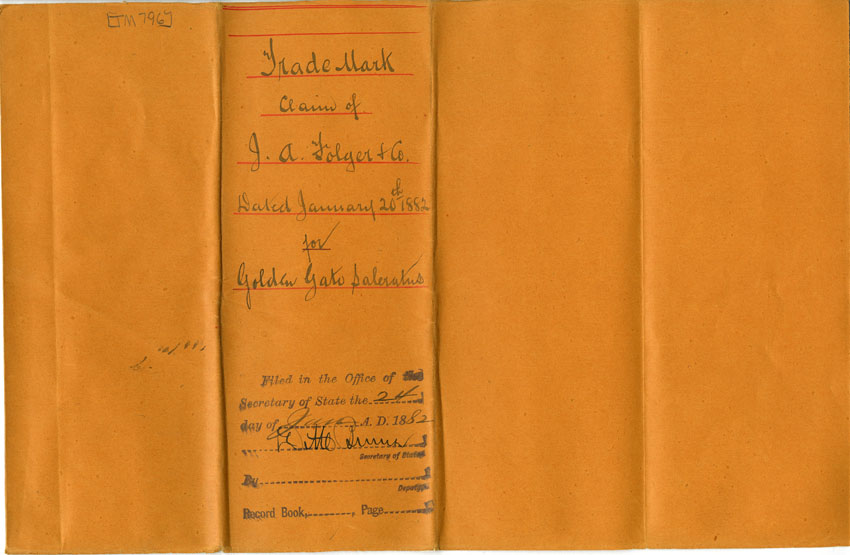 [TM 796]
Trade Mark
Claim of
J. A. Folger & Co.
Dated January 20th 1882
for
Golden Gate Saleratus
Filed in the Office of the
Secretary of State the 24
day of Jan A. D. 1882
Secretary of State
By
Deputy.
Record Book, , Page